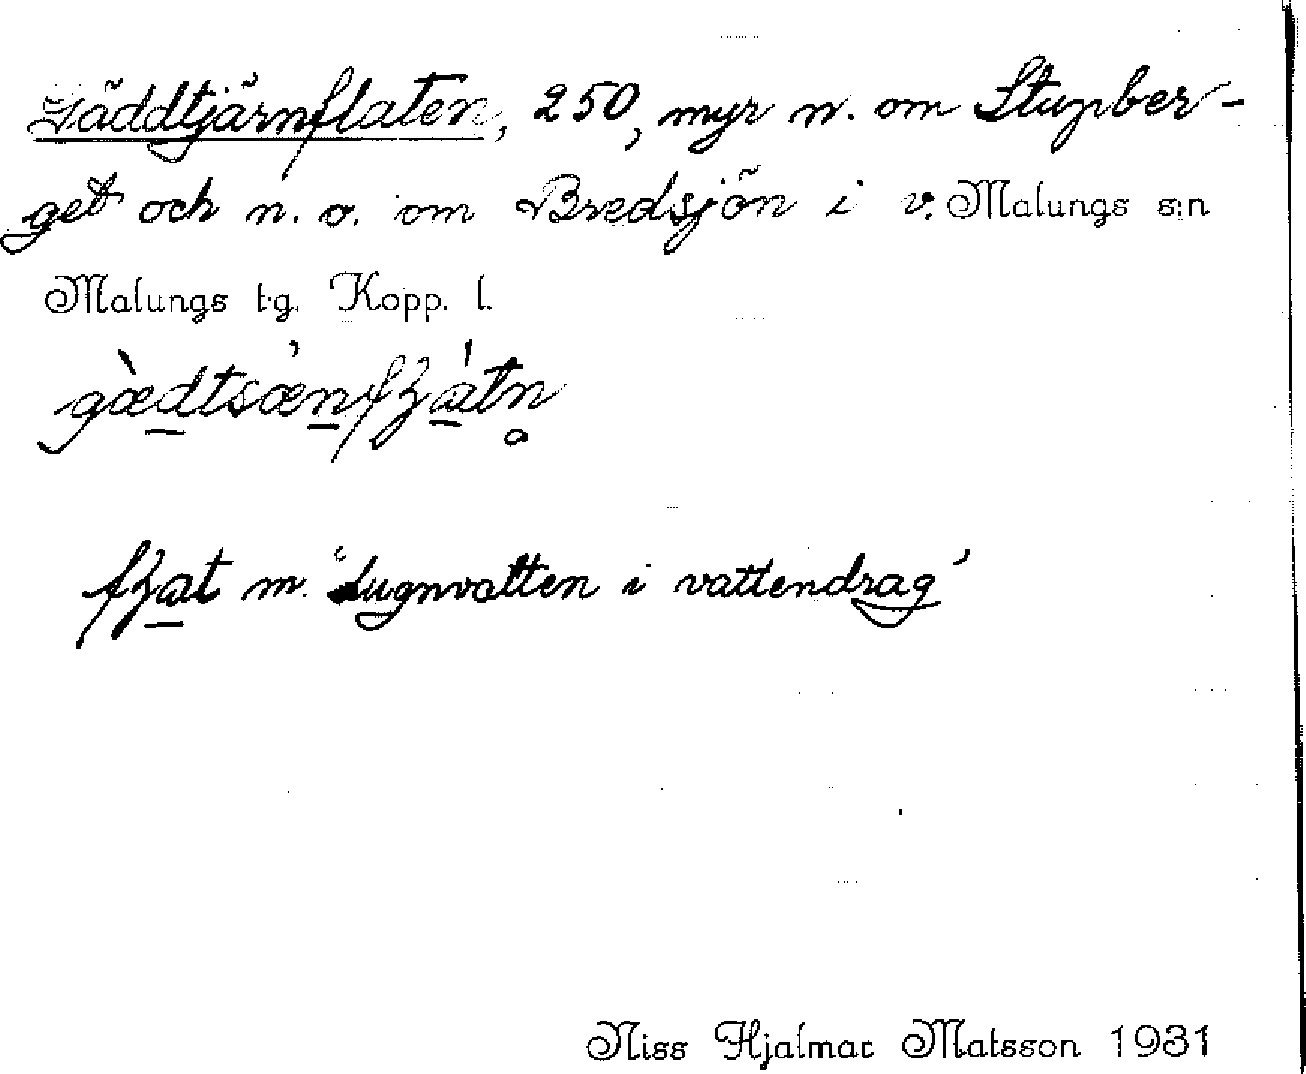 Gäddtjärnflaten, 250, myr n. om Stupber-
get och n. o. om Bredsjön i v. Malungs s:n
Malungs t.g. Kopp. l.
gæ̀dtsænfꞎátn̥
fꞎat m. 'Lugnvatten i vattendrag'
Niss Hjalmar Matsson 1931